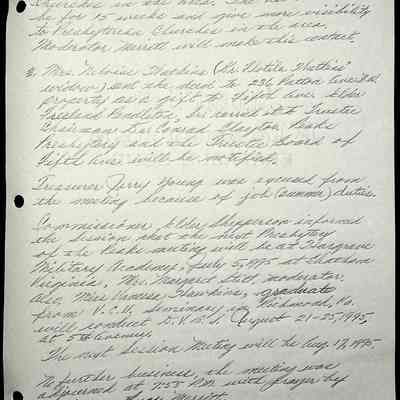 Churches in the area. The
be for 15 weeks and give more visibility
to Presbyterian Churches in the area.
Moderator Merritt will make this contact.
Mrs. Hawkins (Dr. Hawkins'
widow) sent the deed to 236 Patton Ave. N.W.
property as a gift to Fifth Ave. Elder
Freeland Pendleton, Sr. carried it to Trustee
Chairman Conrad Claytor. Peaks
Presbytery and the Trustee Board of
Fifth Ave. will be notified.
Treasurer Jerry Young was excused from
the meeting because of job (summer) duties.
Commissioner, Elder Shepperson informed
the Session that the next Presbytery
of the Peaks meeting will be at Hargrave
Military Academy, July 5, 1995 at Chatham
Virginia, Mrs. Margaret Stitt, moderator.
Also, Miss Hawkins, graduate
from V.C.U., seminary in Richmond, Va.
will conduct D.V.B.S. August 21-25, 1995,
at 5th Avenue.
The next Session Meeting will be Aug. 17, 1995.
No further business, the meeting was
adjourned at 7:55 P.M. with prayer by
Merritt